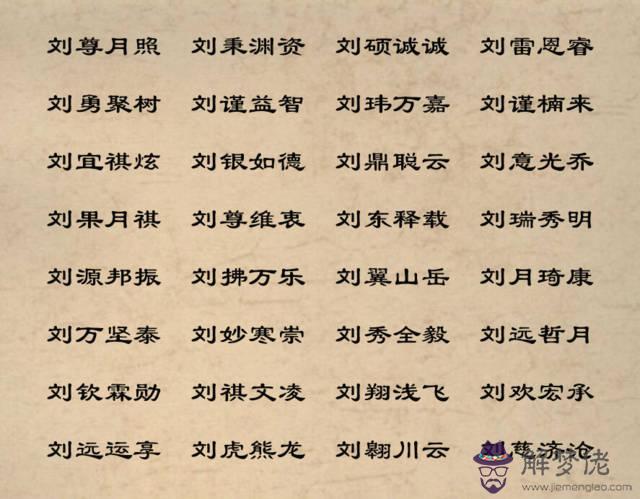 刘尊月照 刘秉渊资 刘硕诚诚 刘雷恩睿
刘勇聚树 刘谨益智 刘玮万嘉 刘谨楠来
刘宜祺炫 刘银如德 刘鼎聪云 刘意光乔
刘果月祺 刘尊维衷 刘东释载 刘瑞秀明
刘源邦振 刘拂万乐 刘翼山岳 刘月琦康
刘万坚泰 刘妙寒崇 刘秀全毅 刘远哲月
刘钦霖勋 刘祺文凌 刘翔浅飞 刘欢宏承
刘远运享 刘虎熊龙 刘翱川云 刘慈济沧
解梦佬
www.jiemenglao.com